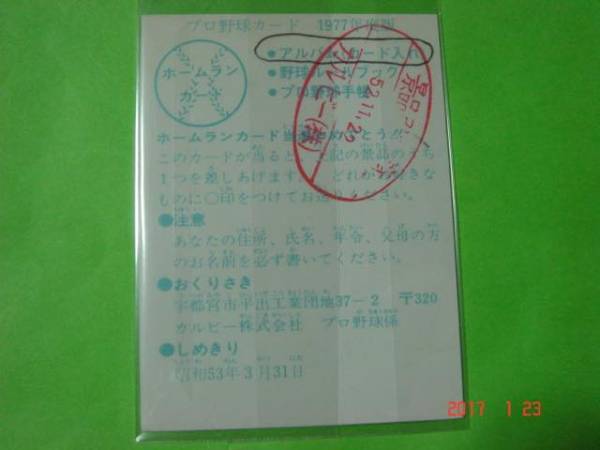 プロ野球カード 1977年度版
ホームラン
カード
●アルバム(カード入れ
●野球ルールブック
●プロ野球手帳
景品
52.11.29
カルビー(株)
ホームランカード当 とう!!
このカードが当ると、上記の景品のうち
1つを差しあげます。 どれかお好きな
ものに○印をつけてお送りください。
●注意
あなたの住所、氏名、年令、父母の方
のお名前を必ず書いてください。
●おくりさき
宇都宮市平出工業団地37-2 〒320
カルビー株式会社 プロ野球係
●しめきり
昭和53年3月31日
2017 1 23